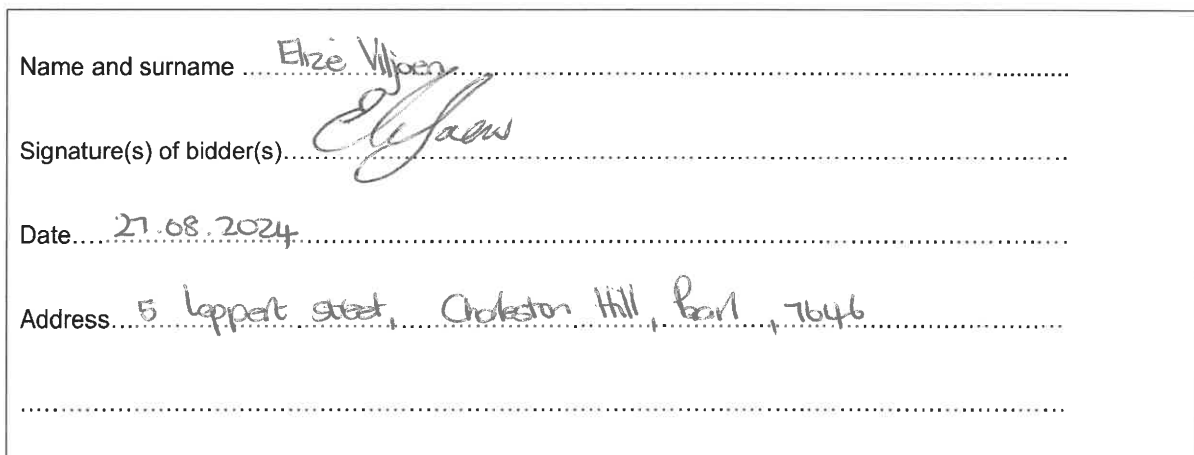 Name and surname ..... Elizé Viljoen
Signature(s) of bidder(s).....
Date.... 27.08.2024
Address... 5 Loppert street, Charleston Hill, Paarl, 7646